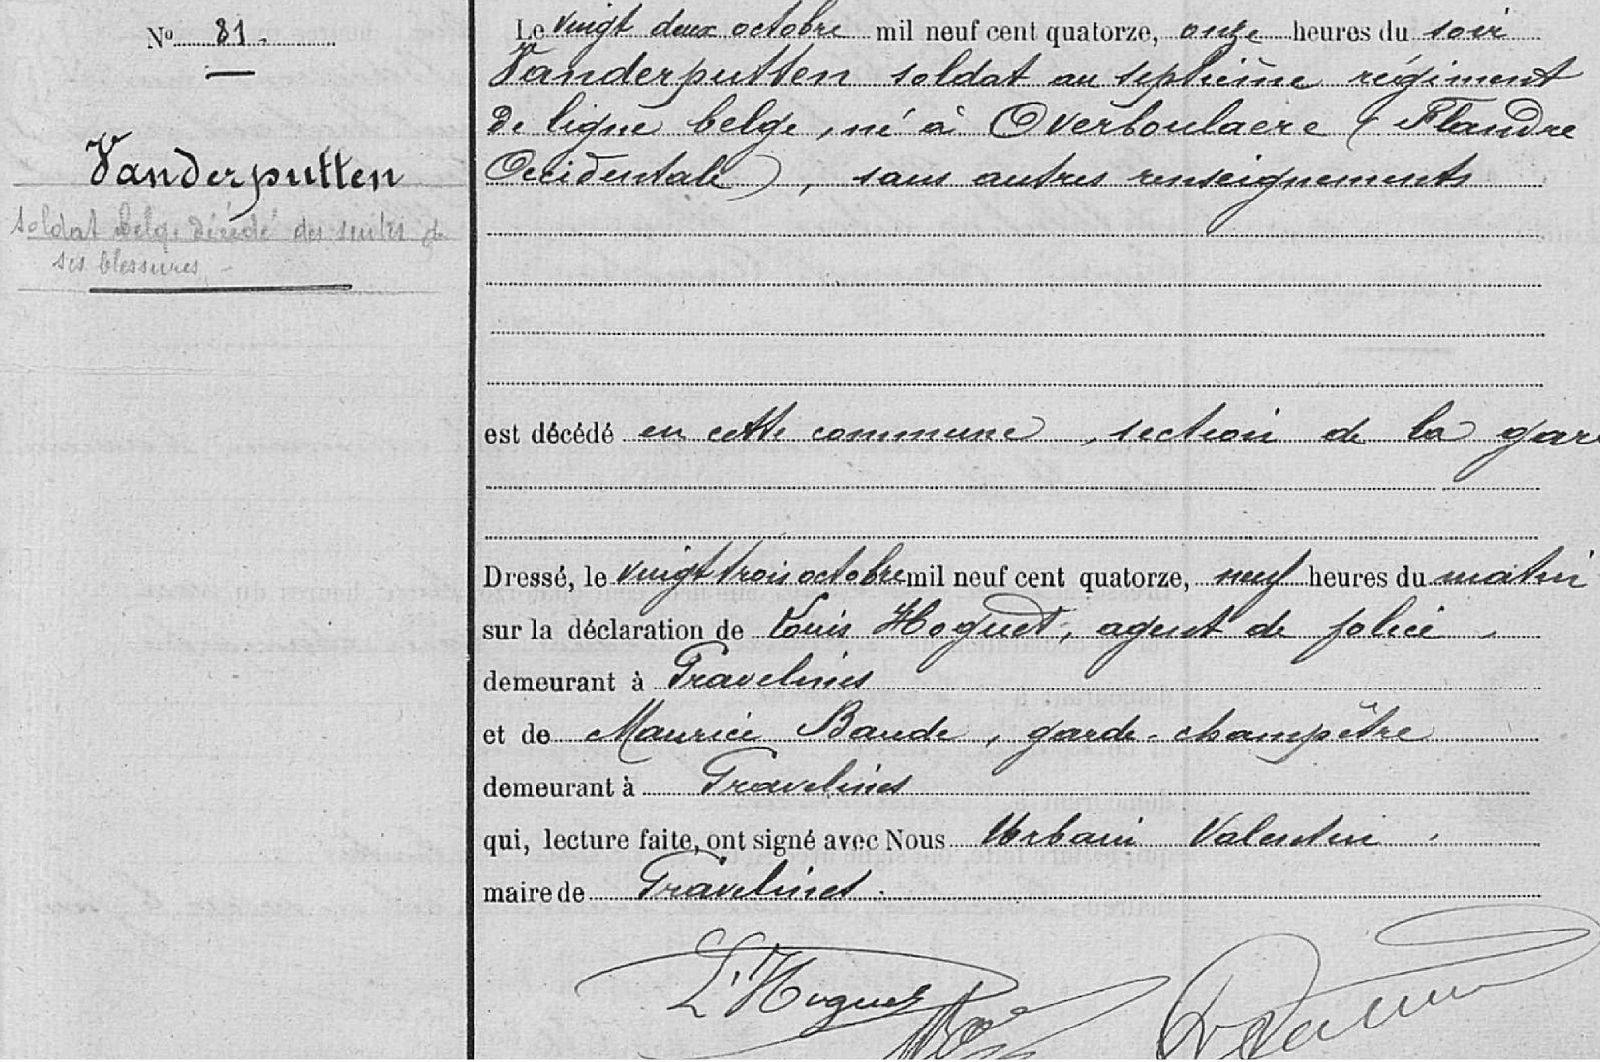 N° 81.
Vanderputten
soldat belge décédé des suites de
ses blessures
Le vingt deux octobre mil neuf cent quatorze, onze heures du soir
Vanderputten soldat au septième régiment
de ligne belge, né à Overboulaere (Flandre
Occidentale), sans autres renseignements
est décédé en cette commune, section de la gare
Dressé, le vingt trois octobre mil neuf cent quatorze, neuf heures du matin
sur la déclaration de Louis Hoguet, agent de police
demeurant à Gravelines
et de Maurice Baude, garde-champêtre
demeurant à Gravelines
qui, lecture faite, ont signé avec Nous Urbain Valentin
maire de Gravelines.
L. Hoguet